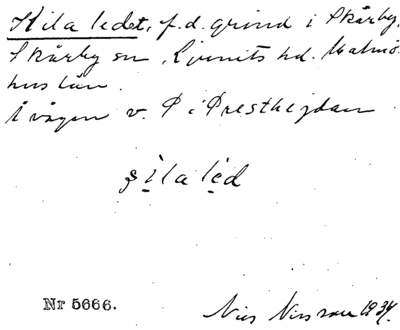 Kila ledet, f.d. grind i Skårby,
Skårby sn, Ljunits hd. Malmö-
hus län.
Å vägen v. P i Presthejdan
ila led
Nr 5666.
Nils Nilsson 1934.